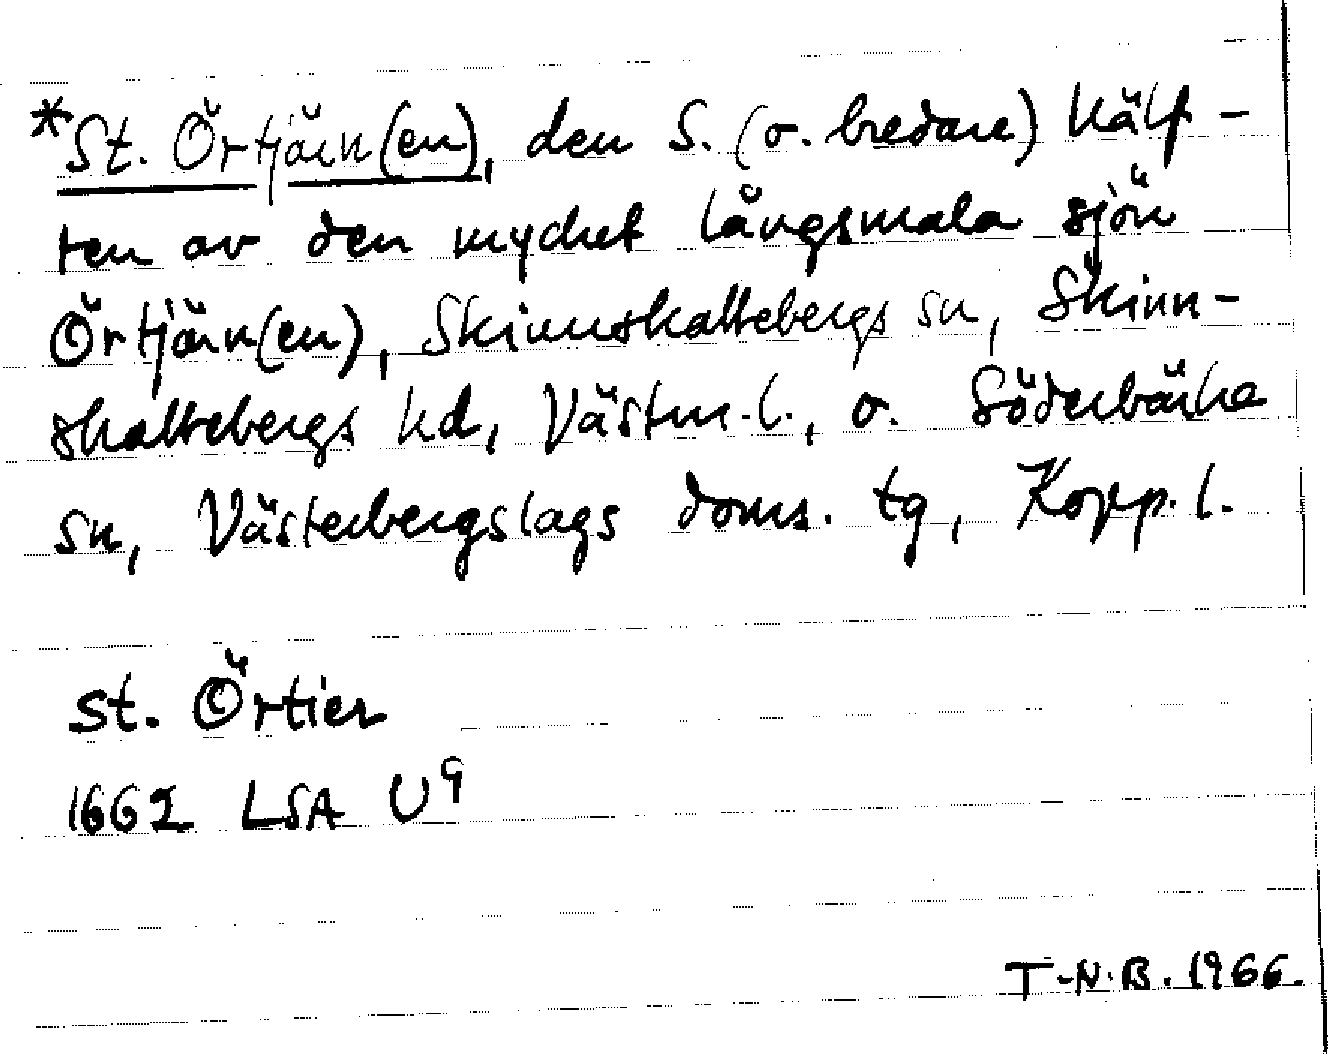 *St. Örtjärn(en), den S. (o. bredare) hälf-
ten av den mycket långsmala sjön
Örtjärn(en), Skinnskattebergs sn, Skinn-
skattebergs hd, Västm. l., o. Söderbärke
sn, Västerbergslags doms. tg, Kopp. l.
St. Örtier
1662 LSA U9
T-N.B. 1966.